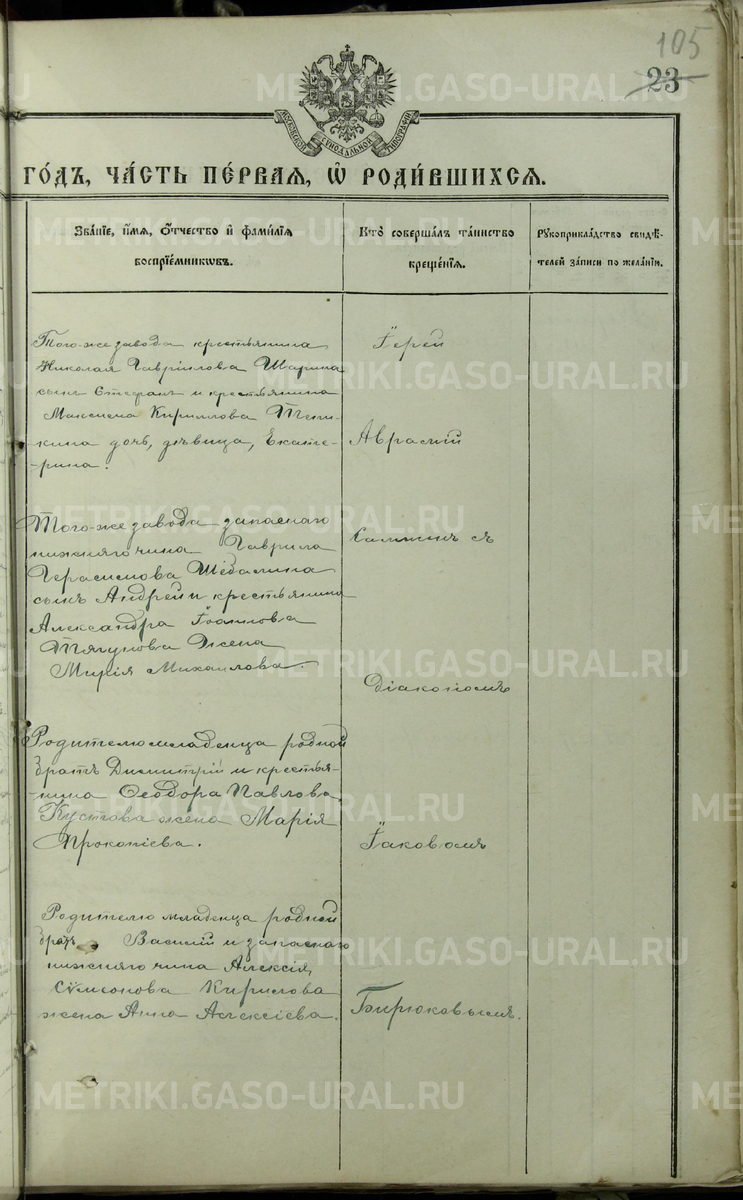 105
23
МОСКОВСКОЙ СѴНОДАЛЬНОЙ ТИПОГРАФІИ
ГО́ДЪ, ЧА́СТЬ ПЕ́РВАЯ, Ѡ҆ РОДИ́ВШИХСЯ.
ЗВА́НІЕ, И҆́МЯ, Ѻ҆́ТЧЕСТВО И҆ ФАМИ́ЛІЯ
ВОСПРІЕ́МНИКѠВЪ.
КТО̀ СОВЕРША́ЛЪ ТА́ИНСТВО
КРЕЩЕ́НІЯ.
РꙊКОПРИКЛА́ДСТВО СВИДѢ́-
ТЕЛЕЙ ЗА́ПИСИ ПО ЖЕЛА́НІЮ.
Того-же завода крестьянина
Николая Гавріилова Шарина
сынъ Стефанъ и крестьянина
Максима Кириллова Тепи-
кина дочь, дѣвица, Екате-
-рина.
Іерей
Авраамій
Того-же завода запаснаго
нижняго чина Гаврила
Герасимова
сынъ Андрей и крестьянина
Александра Іоаннова
Тягунова жена
Марія Михаилова.
съ
Діакономъ
Родителю младенца родной
братъ Димитрій и крестья-
-нина Ѳеодора Павлова
Кустова жена Марія
Прокопіева.
Іаковомъ
Родителю младенца родной
братъ Василій и запаснаго
нижняго чина Алексія
Сѵмеонова Кирилова
жена Анна Алексіева.
Бирюковымъ.
METRIKI.GASO-URAL.RU